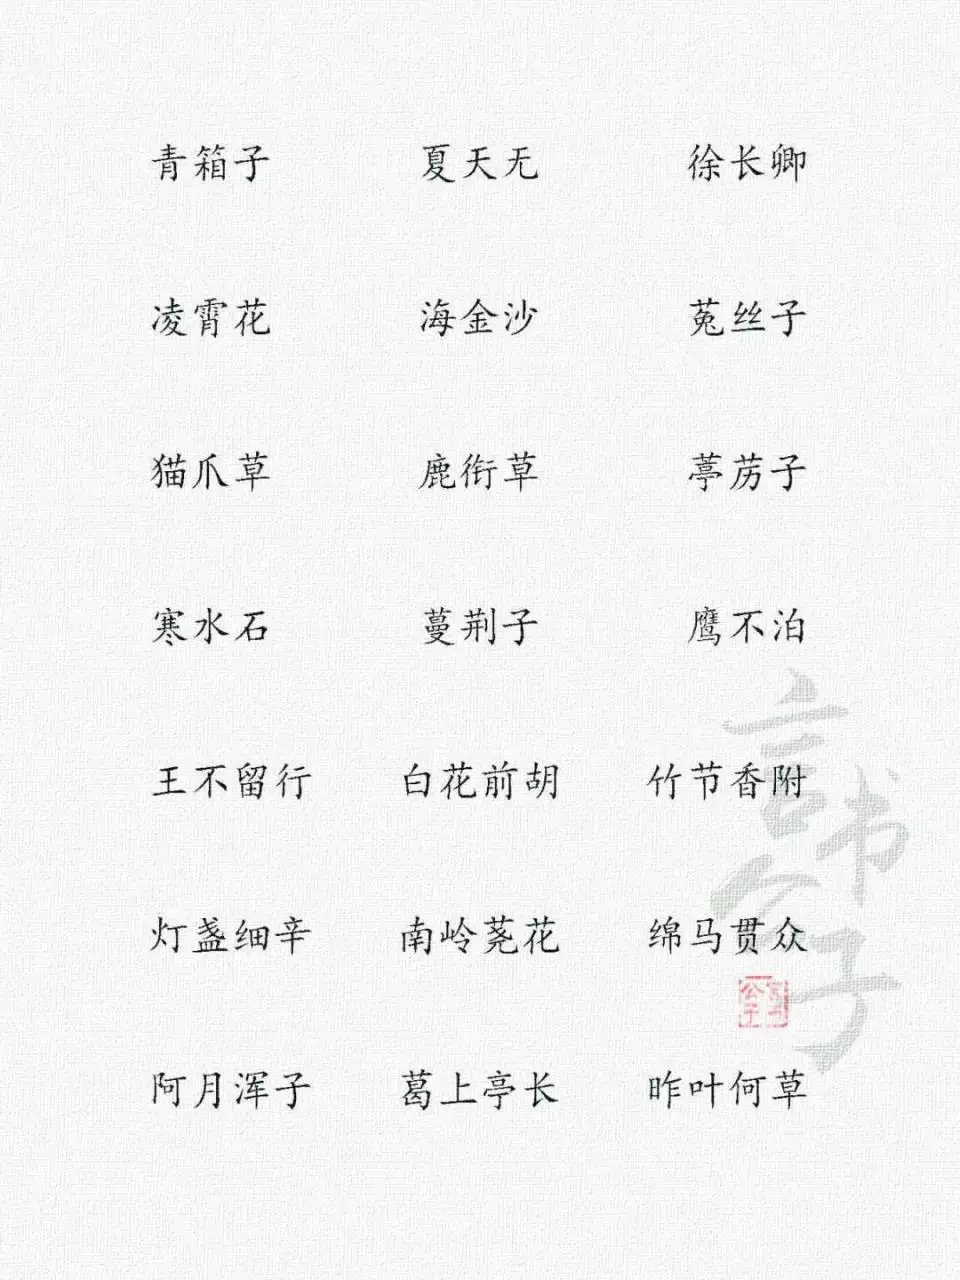 青箱子 夏天无 徐长卿
凌霄花 海金沙 菟丝子
猫爪草 鹿衔草 葶苈子
寒水石 蔓荆子 鹰不泊
王不留行 白花前胡 竹节香附
灯盏细辛 南岭荛花 绵马贯众
阿月浑子 葛上亭长 昨叶何草
言书公子